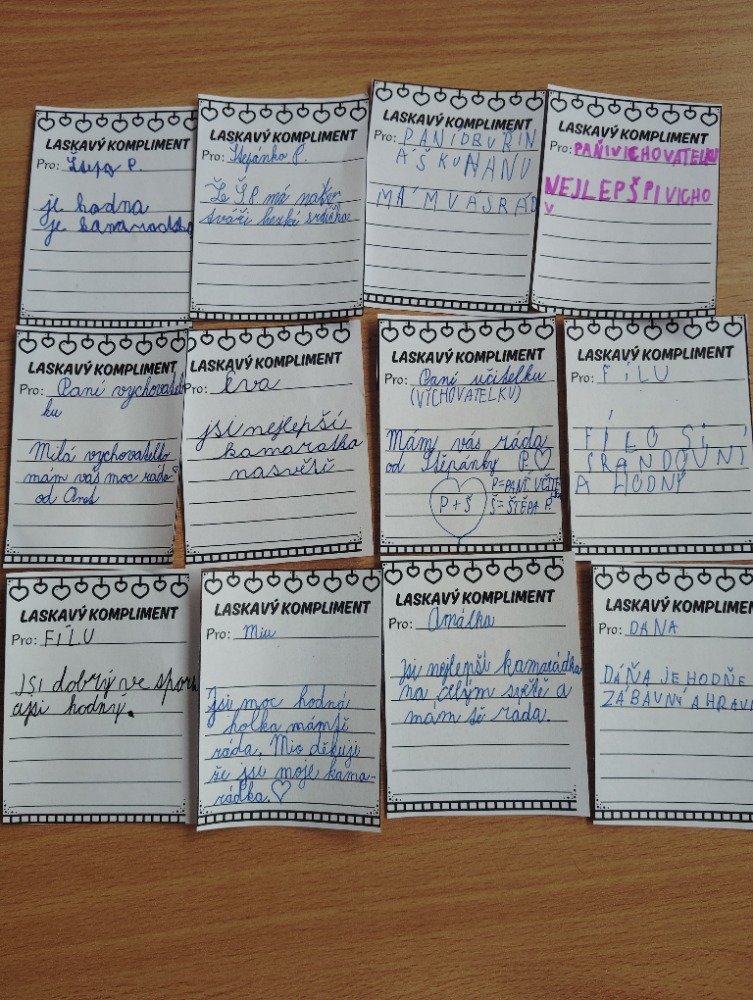 LASKAVÝ KOMPLIMENT
Pro: Štepa P.
je hodna
je kamaradska
LASKAVÝ KOMPLIMENT
Pro: Štepánko P.
Že Š8 má na
tváři hezké srdíčko
LASKAVÝ KOMPLIMENT
Pro: PANÍDBUŘIN
ÁŠKUNANU
MÁMVÁSRÁD
LASKAVÝ KOMPLIMENT
Pro: PAŇIVICHOVATELKU
NEJLEPŠPIVICHO
V
LASKAVÝ KOMPLIMENT
Pro: Paní vychovatel
ku
Milá vychovatelko
mám vás moc ráda
od
LASKAVÝ KOMPLIMENT
Pro: Éva
jsi nejlepší
kamaratka
nasvětě
LASKAVÝ KOMPLIMENT
Pro: Paní učitelku
(VYCHOVATELKU)
Mám vás ráda
od Štěpánky P. ♡
P+Š
P=PANÍ UČITE
Š=ŠTĚPA P.
LASKAVÝ KOMPLIMENT
Pro: FÍLU
FÍLO SI
SRANDOVNÍ
A HODNÝ
LASKAVÝ KOMPLIMENT
Pro: FÍLU
Jsi dobrý ve sporu
ajsi hodný.
LASKAVÝ KOMPLIMENT
Pro: Miu
Jsi moc hodná
holka mámtě
ráda. Mio děkuji
že jsi moje kama-
rádka ♡
LASKAVÝ KOMPLIMENT
Pro: Amálka
Jsi nejlepší kamarádka
na célým světě a
mám tě ráda.
LASKAVÝ KOMPLIMEN
Pro: DAŇA
DÁŇA JE HODŇE
ZÁBAVNÍ A HRAV